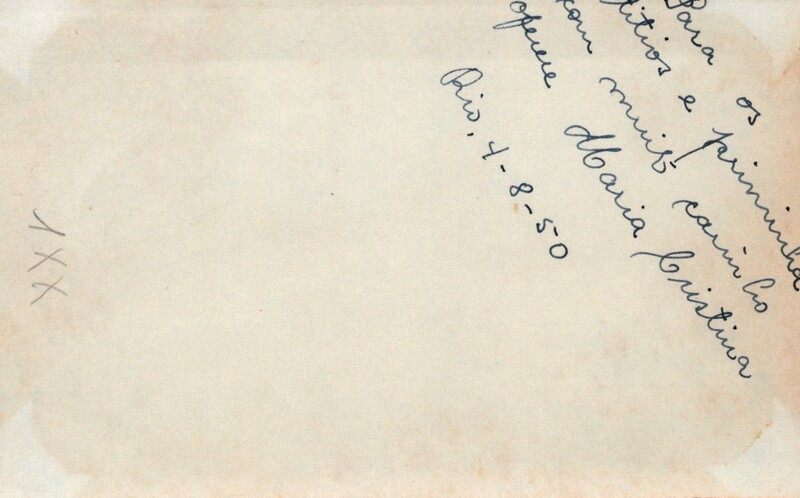 Para os
titios e priminha
com muito carinho
oferece Maria Cristina
Rio, 4-8-50
XXI